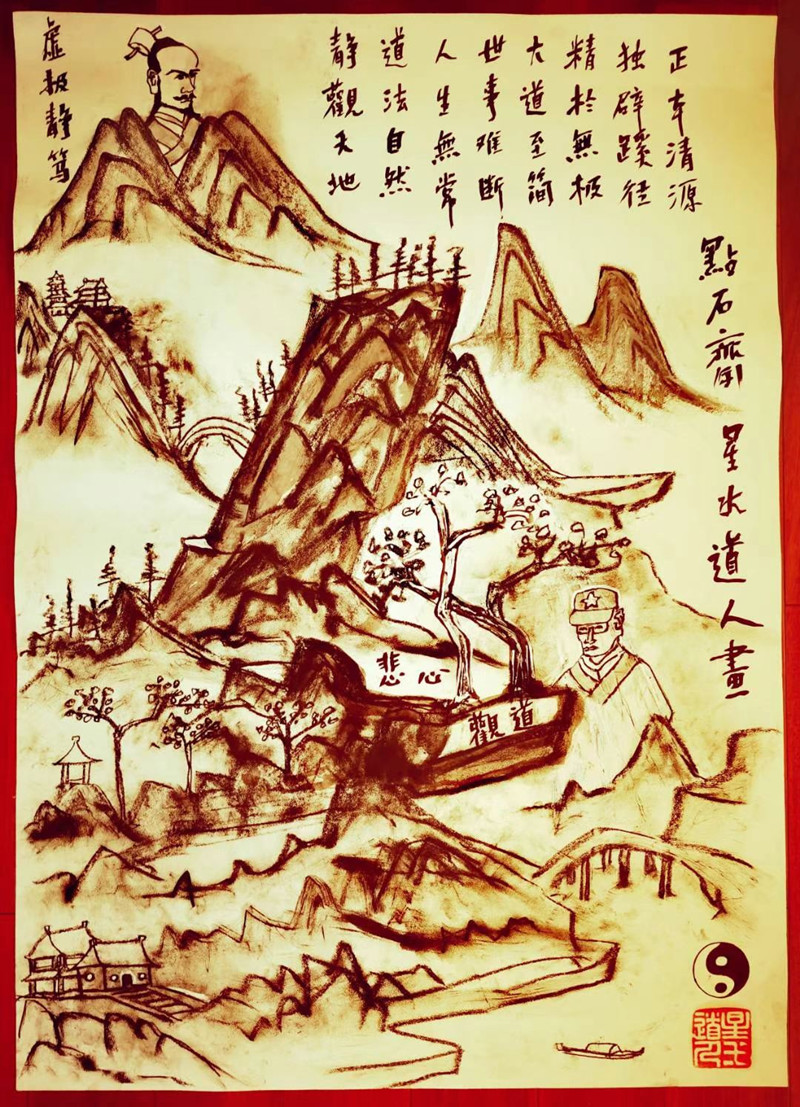 正本清源
独辟蹊径
精於無极
大道至简
世事难断
人生無常
道法自然
静觀天地
虚极静笃
點石齋 星水道人畫
悲心
觀道
星水道人